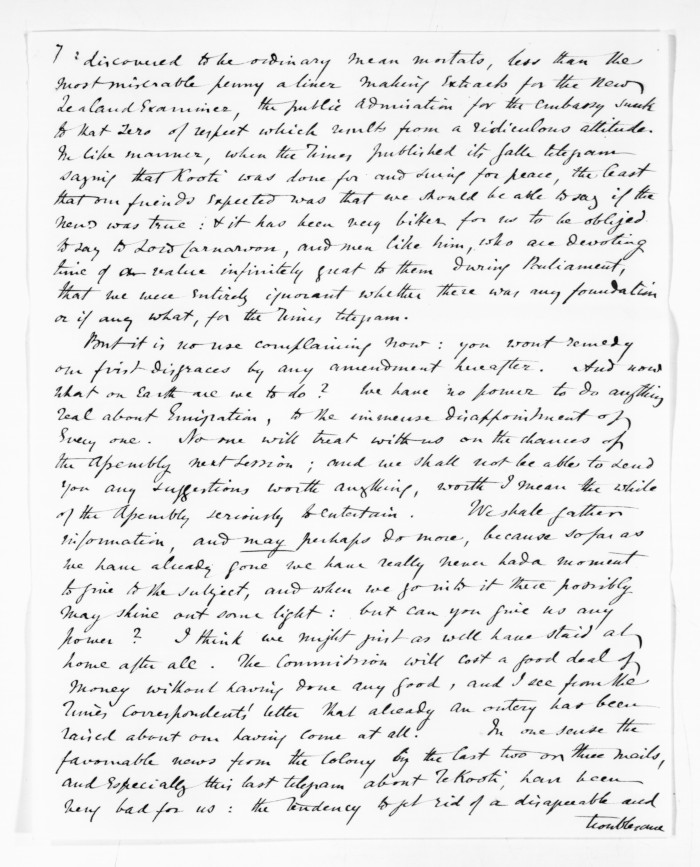 7 : discovered to be ordinary mean mortals, less than the
most miserable penny a liner making Extracts for the New
Zealand Examiner, the public admiration for the embassy sunk
to that Zero of respect which results from a ridiculous attitude.
In like manner, when the Times published its false telegram
saying that Kooti was done for and suing for peace, the least
that our friends Expected was that we should be able to say if the
news was true : & it has been very bitter for us to be obliged
to say to Lord Carnarvon, and men like him, who are devoting
time of a value infinitely great to them during Parliament,
that we were Entirely ignorant whether there was any foundation
or if any what, for the Times telegram.
But it is no use complaining now : you wont remedy
our first disgraces by any amendment hereafter. And now
what on Earth are we to do? We have no power to do anything
real about Emigration, to the immense disappointment of
Every one. No one will treat with us on the chances of
the Assembly next Session ; and we shall not be able to send
you any suggestions worth anything, worth I mean the while
of the Assembly seriously to entertain. We shall gather
information, and may perhaps do more, because so far as
we have already gone we have really never had a moment
to give to the subject, and when we go into it there possibly
may shine out some light : but can you give us any
power? I think we might just as well have staid at
home after all. The Commission will cost a good deal of
money without having done any good, and I see from the
Times Correspondents' letter that already an outcry has been
raised about our having come at all. In one sense the
favourable news from the Colony by the last two or three mails,
and Especially this last telegram about Te Kooti, have been
very bad for us : the tendency to get rid of a disagreeable and
troublesome